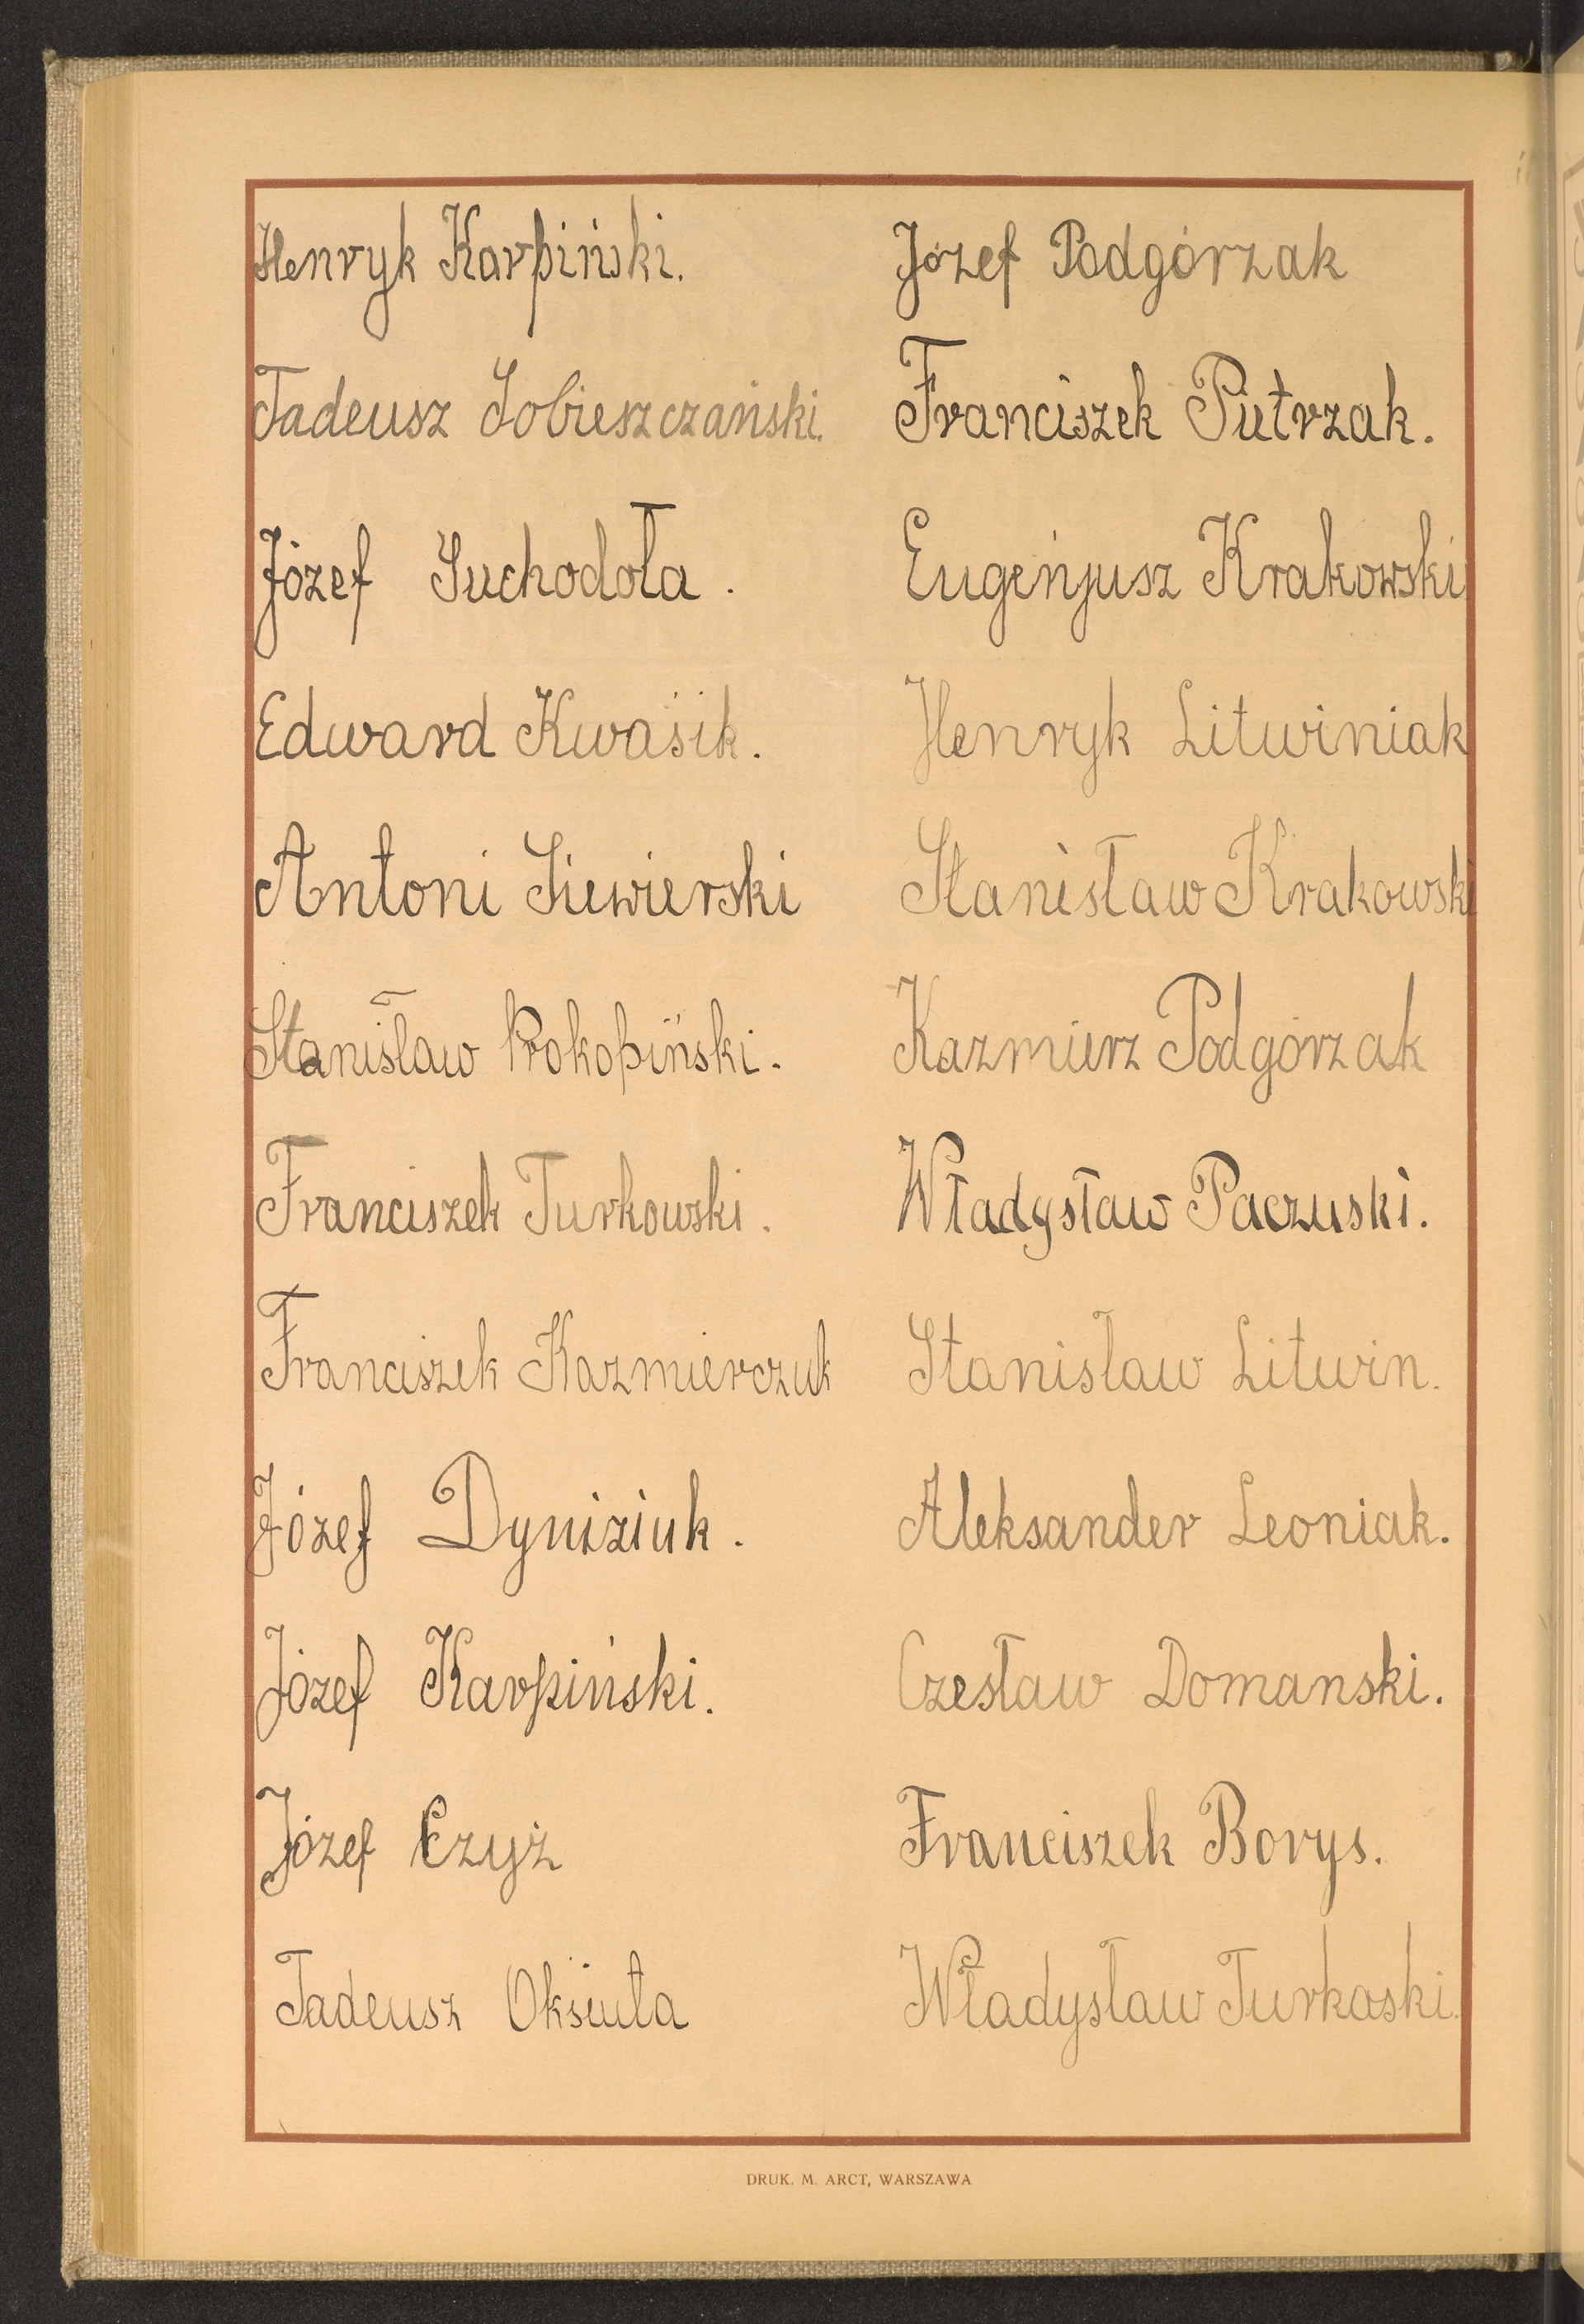 Henryk Karpiński.
Tadeusz Sobieszczański.
Józef Suchodoła.
Edward Kwaśik.
Antoni Siewierski
Stanisław Prokopiński.
Franciszek Turkowski.
Franciszek Kazmierczuk
Józef Dyniziuk.
Józef Karpiński.
Józef Czyż
Tadeusz Oksiuta
Józef Podgórzak
Franciszek Pietrzak.
Eugenjusz Krakowski
Henryk Litwiniak
Stanisław Krakowski
Kazmierz Podgórzak
Władysław Paczuski.
Stanisław Litwin.
Aleksander Leoniak.
Czesław Domanski.
Franciszek Borys.
Władysław Turkoski.
DRUK. M. ARCT, WARSZAWA